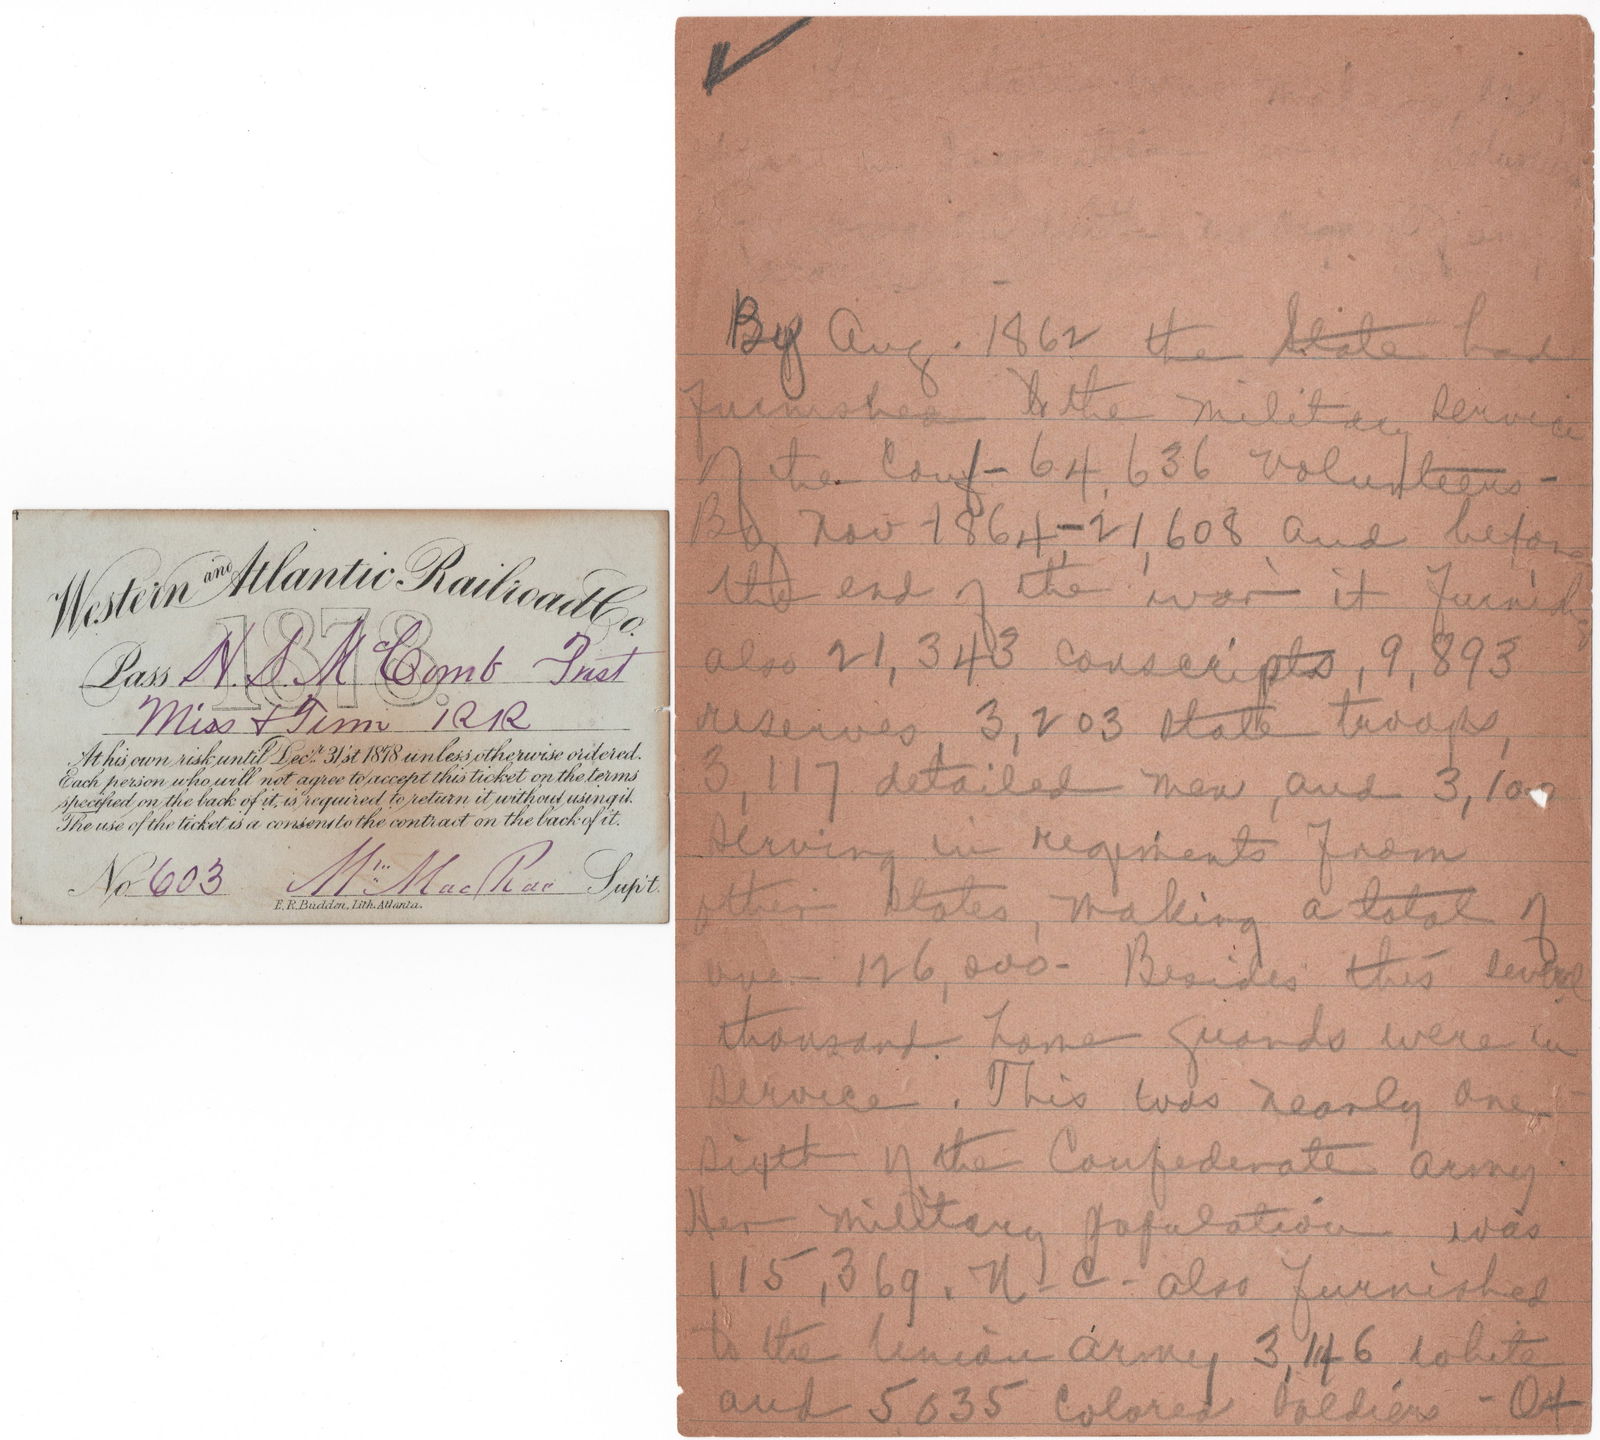 Western and Atlantic Railroad Co.
1878.
Pass H. S. McComb Trst
Miss & Tenn RR
At his own risk until Decr. 31st 1878 unless otherwise ordered.
Each person who will not agree to accept this ticket on the terms
specified on the back of it, is required to return it without using it.
The use of the ticket is a consent to the contract on the back of it.
No 603 Wm. MacRae Sup't.
E. R. Budden, Lith. Atlanta.
By Aug. 1862 the State had
furnished to the military service
of the Conf- 64,636 volunteers-
By Nov 1864-21,608 and before
the end of the war it furnished
also 21,343 conscripts, 9,893
reserves, 3,203 state troops,
3,117 detailed men, and 3,100
serving in regiments from
other states, making a total of
over 126,000- Besides this several
thousand home guards were in
service. This was nearly one-
sixth of the Confederate army.
Her military population was
115,369. N-C- also furnished
to the Union army 3,146 white
and 5035 colored soldiers - Of